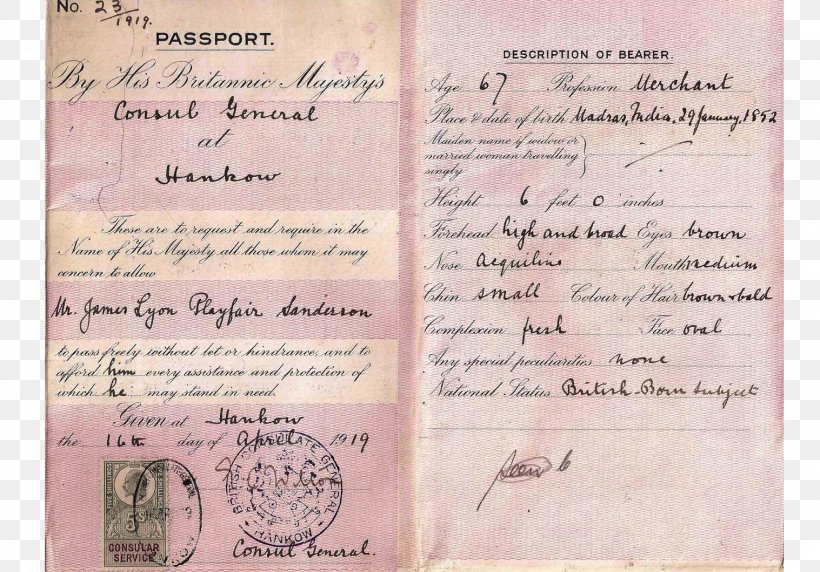 No. 23/1919.
PASSPORT.
By His Britannic Majesty's
Consul General
at
Hankow
These are to request and require in the
Name of His Majesty all those whom it may
concern to allow
Mr. James Lyon Playfair Sanderson
to pass freely without let or hindrance, and to
afford him every assistance and protection of
which he may stand in need.
Given at Hankow
the 16th day of April 1919
BRITISH CONSULATE GENERAL
HANKOW
CONSULAR
SERVICE
Consul General.
DESCRIPTION OF BEARER.
Age 67 Profession Merchant
Place & date of birth Madras, India, 29 January, 1852
Maiden name if widow or
married woman travelling
singly
Height 6 feet 0 inches
Forehead high and broad Eyes brown
Nose Acquiline Mouth medium
Chin small Colour of Hair brown & bald
Complexion fresh Face oval
Any special peculiarities none
National Status British-Born subject